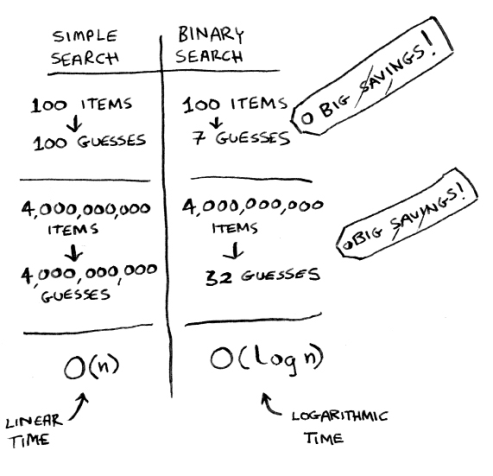 SIMPLE SEARCH
BINARY SEARCH
BIG SAVINGS!
100 ITEMS
100 GUESSES
100 ITEMS
7 GUESSES
4,000,000,000
ITEMS
4,000,000,000
GUESSES
4,000,000,000
ITEMS
32 GUESSES
BIG SAVINGS!
O(n)
O(log n)
LINEAR
TIME
LOGARITHMIC
TIME